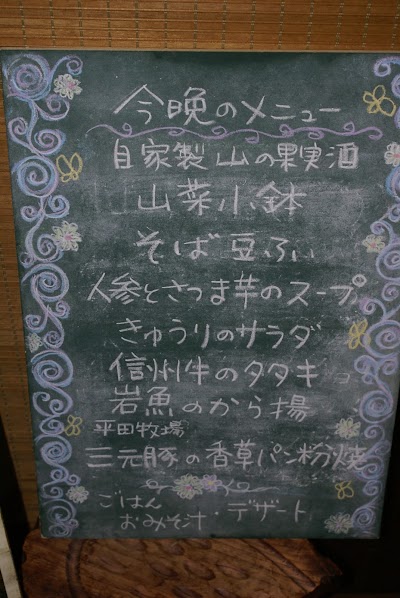 今晩のメニュー
自家製山の果実酒
山菜小鉢
そば豆ふ
人参とさつま芋のスープ
きゅうりのサラダ
信州牛のタタキ
岩魚のから揚
平田牧場
三元豚の香草パン粉焼
ごはん
おみそ汁・デザート